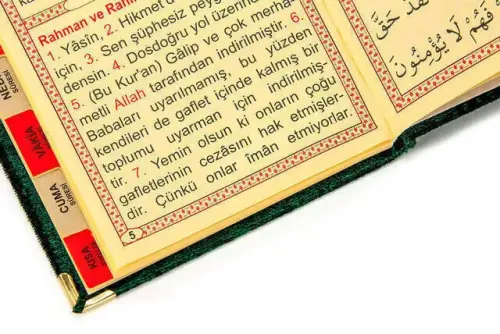 Rahman ve Rah
1. Yâsîn, 2. Hikmet d
için, 3. Sen şüphesiz peyg
densin. 4. Dosdoğru yol üzerin
5. (Bu Kur'an) Gâlip ve çok merha-
metli Allah tarafından indirilmiştir. 6.
Babaları uyarılmamış, bu yüzden
kendileri de gaflet içinde kalmış bir
toplumu uyarman için indirilmiş-
tir. 7. Yemin olsun ki onların çoğu
gafletlerinin cezâsını hak etmişler-
dir. Çünkü onlar îmân etmiyorlar.
5
حَقَّ
فَهُمْ لَا يُؤْمِنُونَ
SÛRESİ
VÂKIA
CUMA
SÛRESİ
KISA